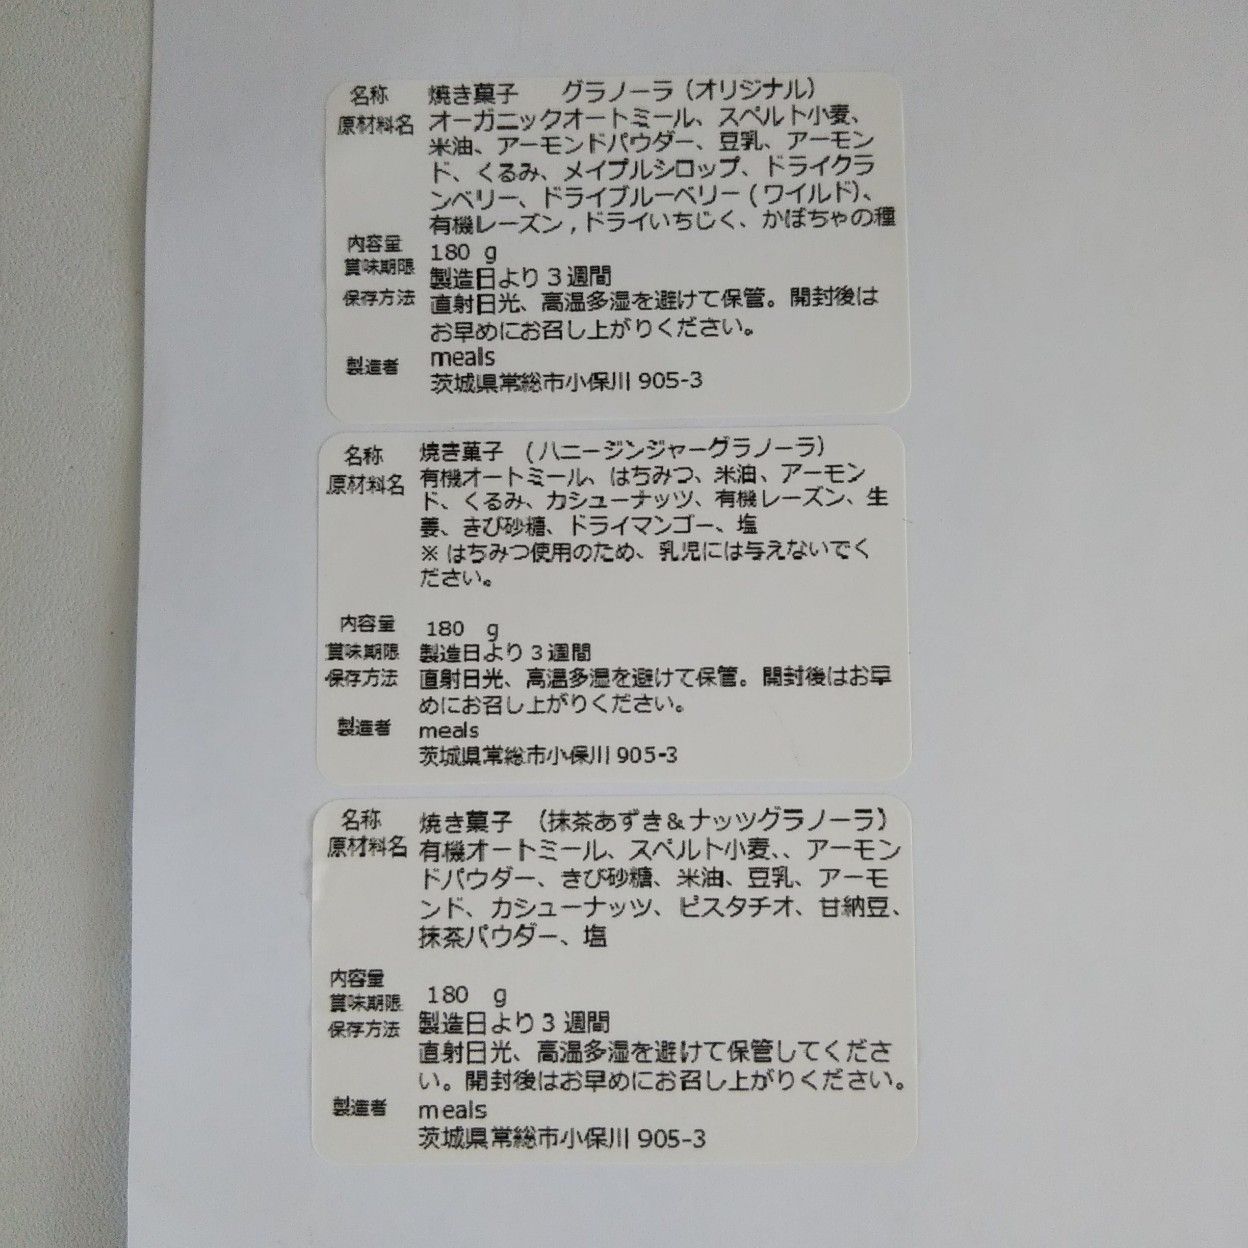 名称 焼き菓子 グラノーラ（オリジナル）
原材料名 オーガニックオートミール、スペルト小麦、
米油、アーモンドパウダー、豆乳、アーモン
ド、くるみ、メイプルシロップ、ドライクラ
ンベリー、ドライブルーベリー（ワイルド）、
有機レーズン , ドライいちじく、かぼちゃの種
内容量 180 g
賞味期限 製造日より 3 週間
保存方法 直射日光、高温多湿を避けて保管。開封後は
お早めにお召し上がりください。
製造者 meals
茨城県常総市小保川 905-3
名称 焼き菓子 （ハニージンジャーグラノーラ）
原材料名 有機オートミール、はちみつ、米油、アーモン
ド、くるみ、カシューナッツ、有機レーズン、生
姜、きび砂糖、ドライマンゴー、塩
※ はちみつ使用のため、乳児には与えないでく
ださい。
内容量 180 g
賞味期限 製造日より 3 週間
保存方法 直射日光、高温多湿を避けて保管。開封後はお早
めにお召し上がりください。
製造者 meals
茨城県常総市小保川 905-3
名称 焼き菓子 （抹茶あずき＆ナッツグラノーラ）
原材料名 有機オートミール、スペルト小麦、、アーモン
ドパウダー、きび砂糖、米油、豆乳、アーモ
ンド、カシューナッツ、ピスタチオ、甘納豆、
抹茶パウダー、塩
内容量 180 g
賞味期限 製造日より 3 週間
保存方法 直射日光、高温多湿を避けて保管してくださ
い。開封後はお早めにお召し上がりください。
製造者 meals
茨城県常総市小保川 905-3